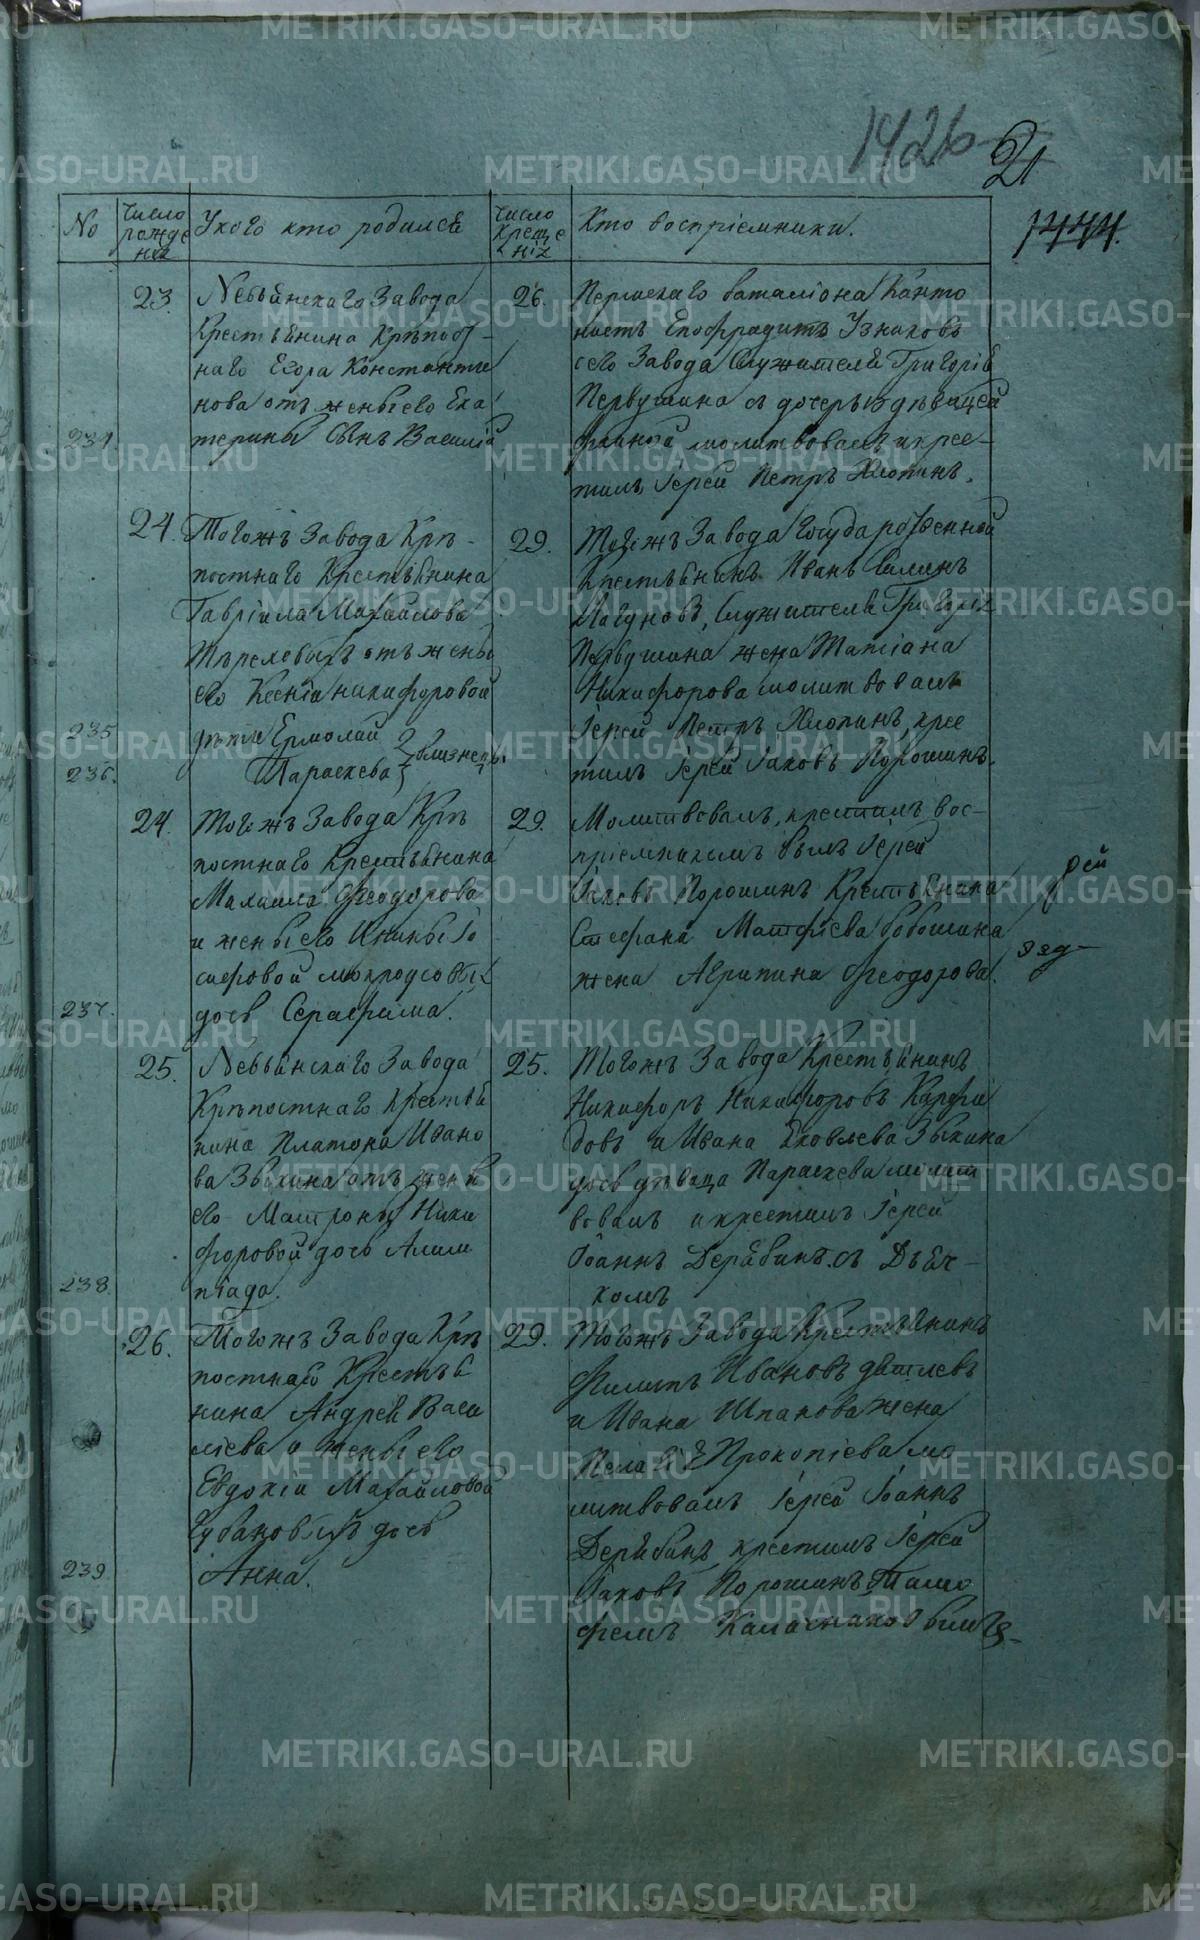 1426
21
1444.
No
Число рожде нія
У кого кто родился
Число креще нія
Кто воспріемники.
234.
23.
Невьянскаго Завода
Крестьянина Крѣпост-
наго Егора Константи
нова отъ жены его Ека
терины сынъ Василій
26.
Пермскаго баталіона Канто
нистъ Епафродитъ
сего Завода Служителя Григорія
Первушина съ дочерью дѣвицей
молитвовалъ и крес-
тилъ Іерей Петръ Хлопинъ.
235
236.
24.
Тогожъ Завода Крѣ-
постнаго Крестьянина
Гавріила Михайлова
отъ жены
его Ксеніи Никифоровой
дѣти Ермолай
Параскева близнецы.
29.
Тогожъ Завода Государственной
Крестьянинъ Иванъ
Лагуновъ, Служителя Григорія
Первушина жена Татіана
Никифорова молитвовалъ
Іерей Петръ Хлопинъ, крес
тилъ Іерей Іаковъ Порошинъ.
237.
24.
Тогожъ Завода Крѣ
постнаго Крестьянина
Михаила Феодорова
и жены его Іо
сифовой
дочь Серафима.
29.
Молитвовалъ, крестилъ вос-
пріемникомъ былъ Іерей
Іаковъ Порошинъ Крестьянина
Стефана Матфіева
жена Агрипина Феодорова.
238.
25.
Невьянскаго Завода
Крѣпостнаго Крестья
нина Платона Ивано
ва Зыкина отъ жены
его Матроны Ники
форовой дочь Алим
піада.
25.
Тогожъ Завода Крестьянинъ
Никифоръ Никифоровъ Карфи
довъ и Ивана Яковлева Зыкина
дочь дѣвица Параскева молит
вовалъ и крестилъ Іерей
Іоаннъ Дерябинъ съ Дьяч-
комъ
239
26.
Тогожъ Завода Крѣ
постнаго Крестья
нина Андрея Васи
ліева и жены его
Евдокіи Михайловой
дочь
Анна.
29.
Тогожъ Завода Крестьянинъ
Филиппъ Ивановъ
и Ивана Шпакова жена
Пелагія Прокопіева мо
литвовалъ Іерей Іоаннъ
Дерябинъ, крестилъ Іерей
Іаковъ Порошинъ,
METRIKI.GASO-URAL.RU